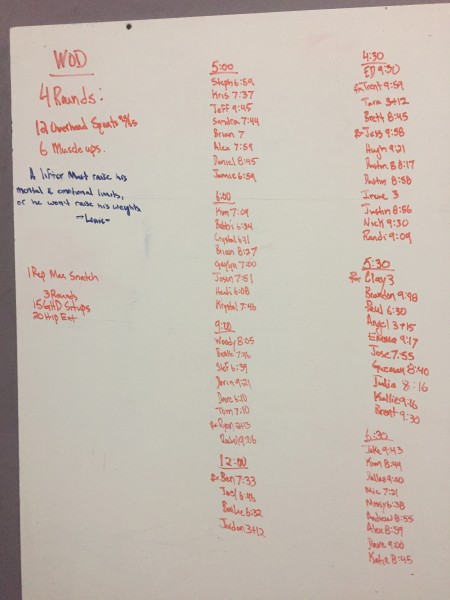 WOD
4 Rounds:
12 Overhead Squats 95/65
6 Muscle ups.
A lifter Must raise his
mental & emotional limits,
or he won't raise his weights
1 Rep Max Snatch
3 Rounds
15 GHD Situps
20 Hip Ext
5:00
Steph 6:59
Kris 7:37
Jeff 9:45
Sandra 7:44
Brian 7
Alex 7:59
Daniel 8:45
Jamie 6:59
6:00
Kim 7:09
Bobbi 6:34
Crystal 6:1
Brian 8:27
7:00
Jason 7:51
Heidi 6:08
Krystal 7:46
9:00
Woody 8:05
7:16
Stef 6:39
Dorin 9:21
Dave 6:10
Tom 7:10
Rx Ryan 2+13
9:06
12:00
Rx Ben 7:33
Joel 6:46
6:32
Jordan 3+12
4:30
ED 9:30
Rx Trent 9:59
Tara 3+12
Brett 8:45
Rx Jess 9:58
Hugh 9:21
Dustin B 8:17
Dustin 8:58
Irene 3
Justin 8:56
Nick 9:30
Randi 9:09
5:30
Rx Clay 3
Brandon 9:98
Paul 6:30
Angel 3+15
Emma 9:17
Jose 7:55
Guzman 8:40
Julia 8:16
Kallie 9:16
Brent 9:30
6:30
Jake 9:43
Kim 8:44
Dallas 9:00
Mic 7:21
Missy 6:38
Andrew 8:55
Alex 8:59
Dave 9:00
Katie 8:45